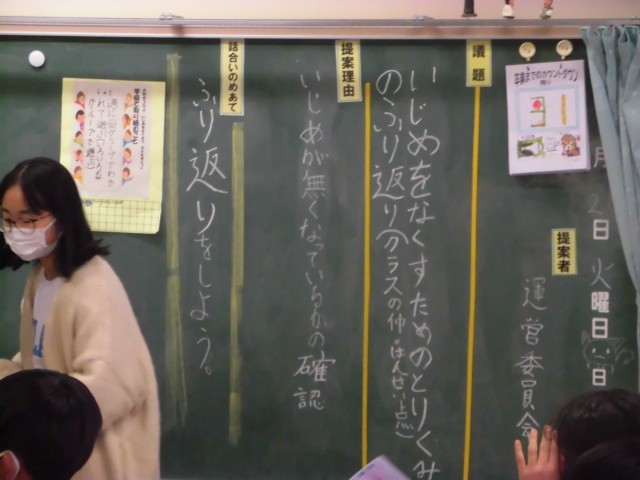 月
2日
火曜日
日
提案者
運営委員会
卒業までのカウントダウン
議題
いじめをなくすためのとりくみ
のふり返り(クラスの仲・はんせい点)
提案理由
いじめが無くなっているかの確認
話合いのめあて
ふり返りをしよう。